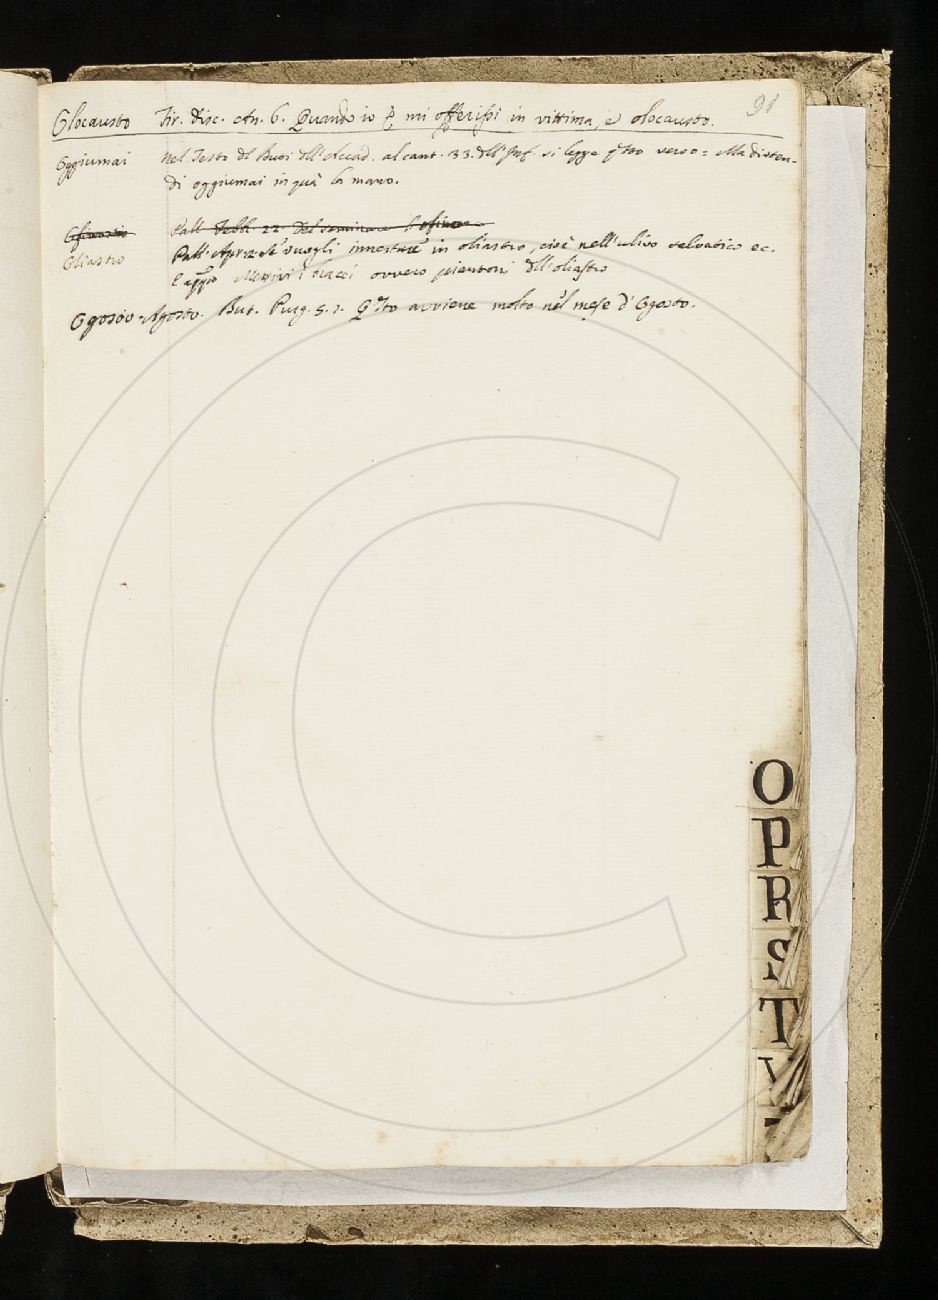 91
Olocausto Fir. disc. an. 6. Quando io ꝑ mi offerissi in vittima, e olocausto.
Oggiumai Nel Testo dl Buti dll'Accad. al cant. 33. dll'Inf. si legge qsto verso = Ma disten-
di oggiumai in quà la mano.
Pall. Febb. 22. Del seminare
Oliastro Pall. Apr. 2. Se vuogli innestare in oliastro, cioè nell'ulivo salvatico ec.
E appo Mettivi i bracci ovvero piantoni dll'oliastro
Ogosto. Agosto. But. Purg. 5. 2. Qsto avviene molto nel mese d'Ogosto.
O
P
R
S
T
V